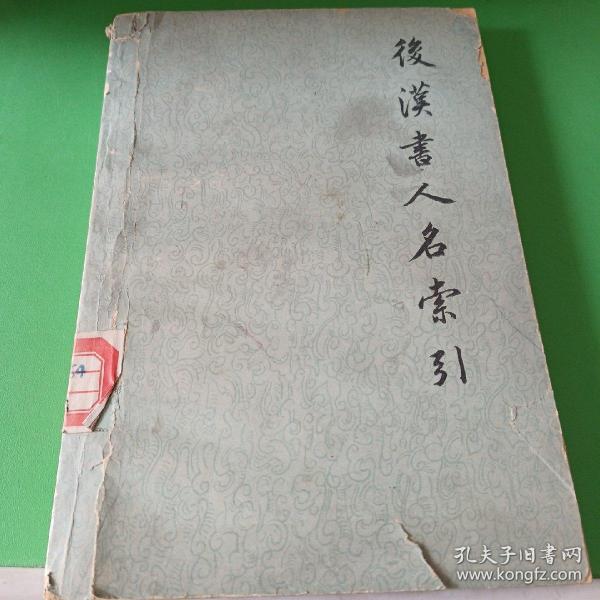 後漢書人名索引
54
孔夫子旧书网
www.kongfz.com